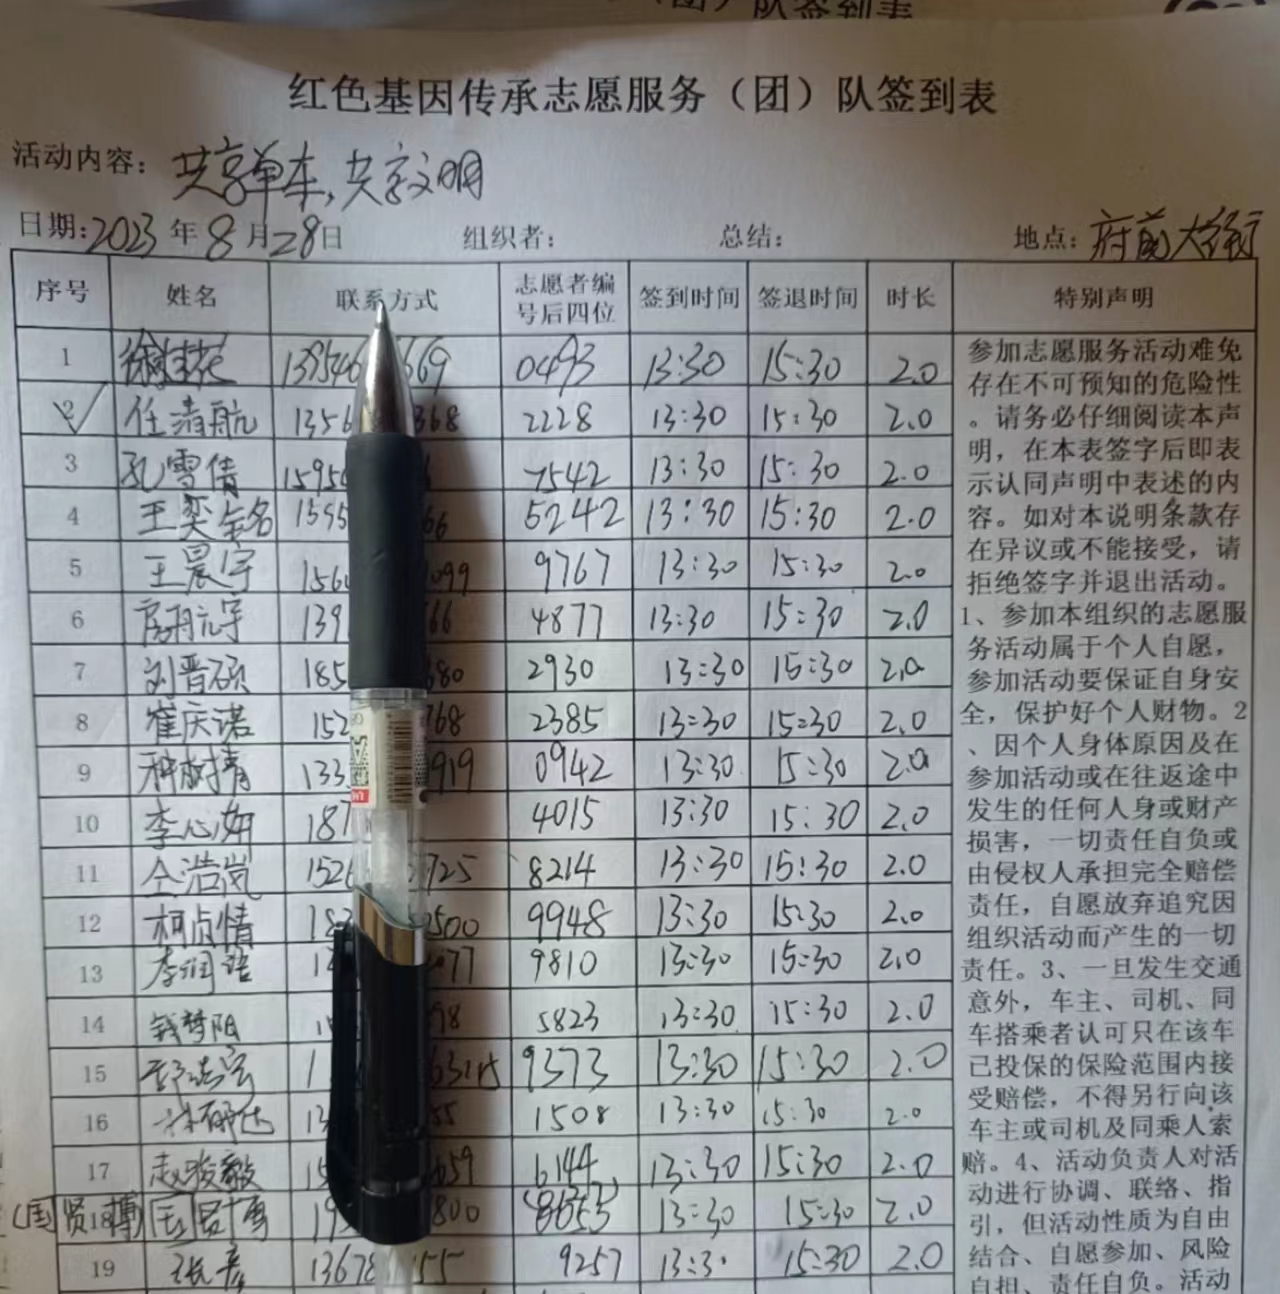 队签到表
红色基因传承志愿服务（团）队签到表
活动内容：共享单车，共享文明
日期：2023年8月28日 组织者： 总结： 地点：府前大街
序号 姓名 联系方式 志愿者编号后四位 签到时间 签退时间 时长 特别声明
1 0493 13:30 15:30 2.0
2 任清航 1356 368 2228 13:30 15:30 2.0
3 孔雪倩 1595 7542 13:30 15:30 2.0
4 王奕 1595 66 5242 13:30 15:30 2.0
5 王晨宇 156 099 9767 13:30 15:30 2.0
6 139 66 4877 13:30 15:30 2.0
7 刘晋硕 185 680 2930 13:30 15:30 2.0
8 崔庆诺 152 768 2385 13:30 15:30 2.0
9 133 919 0942 13:30 15:30 2.0
10 李心如 187 4015 13:30 15:30 2.0
11 仝浩岚 152 725 8214 13:30 15:30 2.0
12 柯贞情 18 500 9948 13:30 15:30 2.0
13 李润语 1 077 9810 13:30 15:30 2.0
14 钱梦阳 98 5823 13:30 15:30 2.0
15 1 9373 13:30 15:30 2.0
16 13 55 1508 13:30 15:30 2.0
17 赵骏毅 15 659 6144 13:30 15:30 2.0
（国贤博）18 国贤博 19 800 13:30 15:30 2.0
19 张彦 13678 155 9257 13:3 15:30 2.0
参加志愿服务活动难免
存在不可预知的危险性
。请务必仔细阅读本声
明，在本表签字后即表
示认同声明中表述的内
容。如对本说明条款存
在异议或不能接受，请
拒绝签字并退出活动。
1、参加本组织的志愿服
务活动属于个人自愿，
参加活动要保证自身安
全，保护好个人财物。2
、因个人身体原因及在
参加活动或在往返途中
发生的任何人身或财产
损害，一切责任自负或
由侵权人承担完全赔偿
责任，自愿放弃追究因
组织活动而产生的一切
责任。3、一旦发生交通
意外，车主、司机、同
车搭乘者认可只在该车
已投保的保险范围内接
受赔偿，不得另行向该
车主或司机及同乘人索
赔。4、活动负责人对活
动进行协调、联络、指
引，但活动性质为自由
结合、自愿参加、风险
自担、责任自负。活动